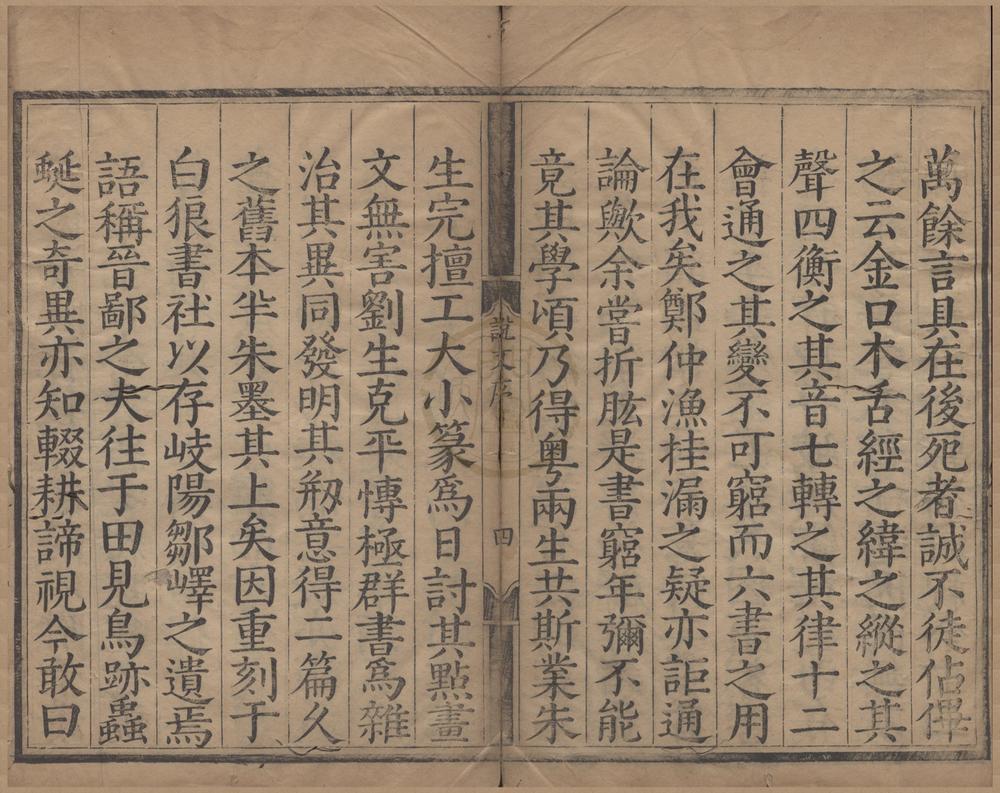 萬餘言具在後死者誠不徒佔僤
之云金口木舌經之緯之縱之其
聲四衡之其音七轉之其律十二
會通之其變不可窮而六書之用
在我矣鄭仲漁挂漏之疑亦詎通
論歟余嘗折肱是書窮年彌不能
竟其學頃乃得粵兩生共斯業朱
說文序
四
生完擅工大小篆為日討其點畫
文無害劉生克平慱極群書為雜
治其異同發明其剏意得二篇久
之舊本半朱墨其上矣因重刻于
白狼書社以存岐陽鄒嶧之遺焉
語稱晉鄙之夫往于田見鳥跡蟲
蜒之奇異亦知輟耕諦視今敢曰